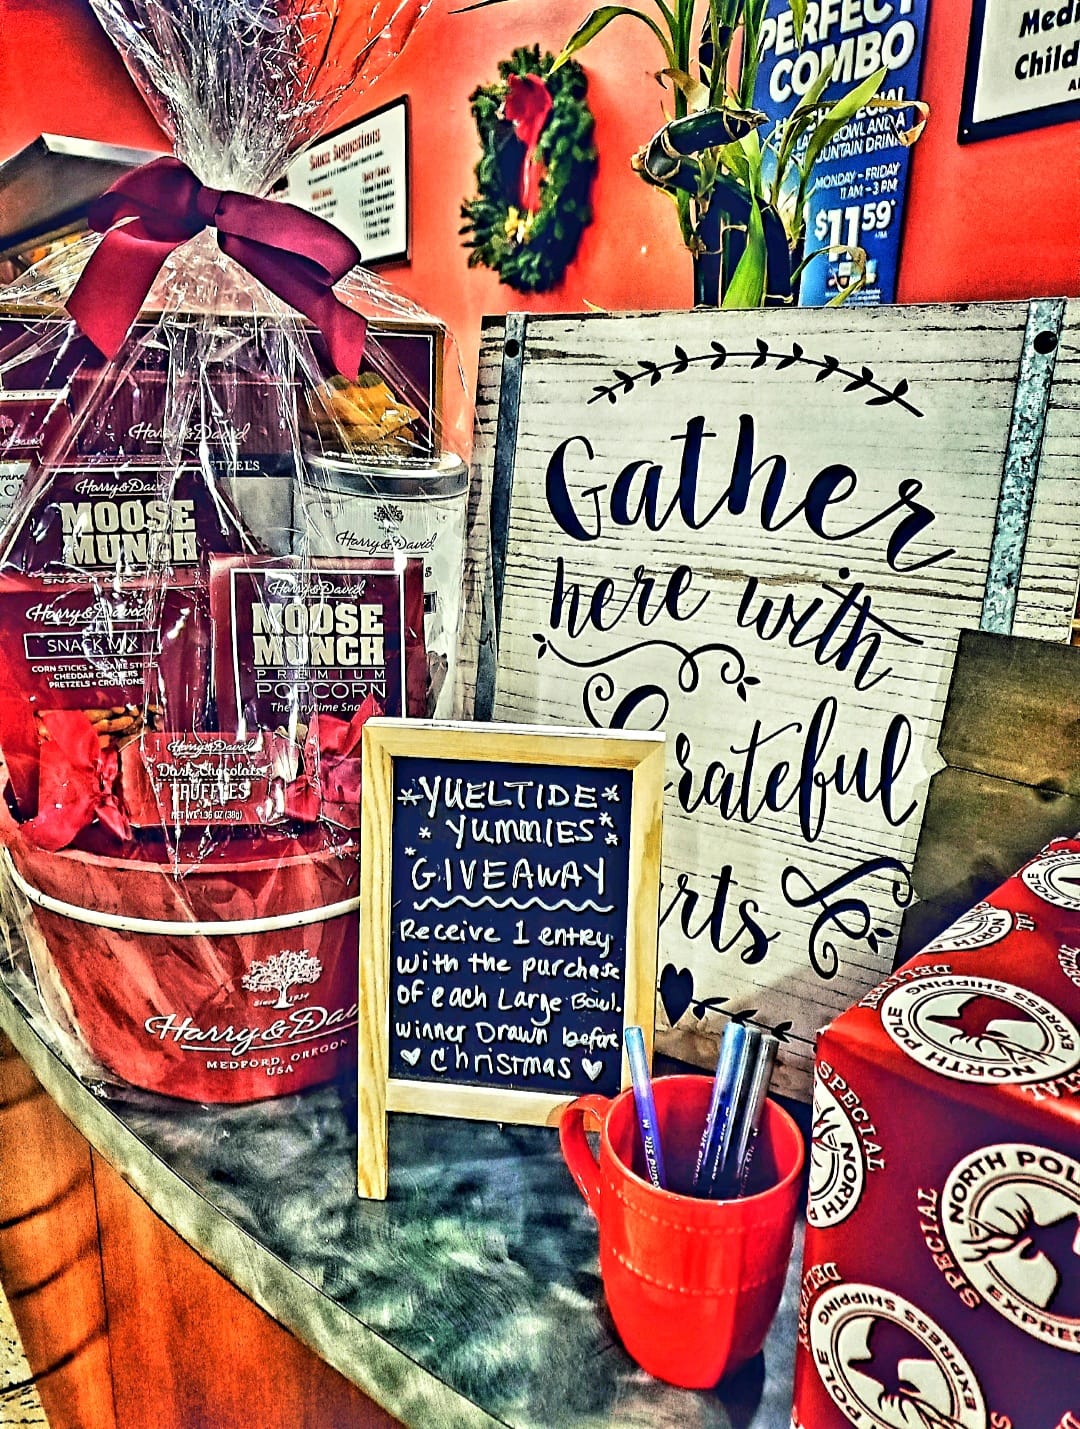 PERFECT
COMBO
BOWL AND A
MONDAY - FRIDAY
11 AM - 3 PM
$11.59*
Medi
Child
Sauce Suggestions
Harry & David
Harry & David
MOOSE
MUNCH
SNACK MIX
Harry & David
Harry & David
SNACK MIX
CORN STICKS • SESAME STICKS
CHEDDAR CRACKERS
PRETZELS • CROUTONS
Harry & David
MOOSE
MUNCH
PREMIUM
POPCORN
The Anytime Sna
Harry & David
Dark Chocolate
TRUFFLES
NET WT 1.36 OZ (38g)
Since 1934
Harry & Dav
MEDFORD, OREGON
USA
Gather
here with
Grateful
rts
*YUELTIDE*
* YUMMIES *
* GIVEAWAY
Receive 1 entry
with the purchase
of each Large Bowl.
Winner Drawn before
♥ Christmas ♥
Round Stic M
Round Stic M
SPECIAL
DELIVERY
NORTH POLE
EXPRESS SHIPPING
SPECIAL
NORTH P
SPECIAL
NORTH POL
EXPRES
DELIVERY
POLE
EXPRESS SHIPPING